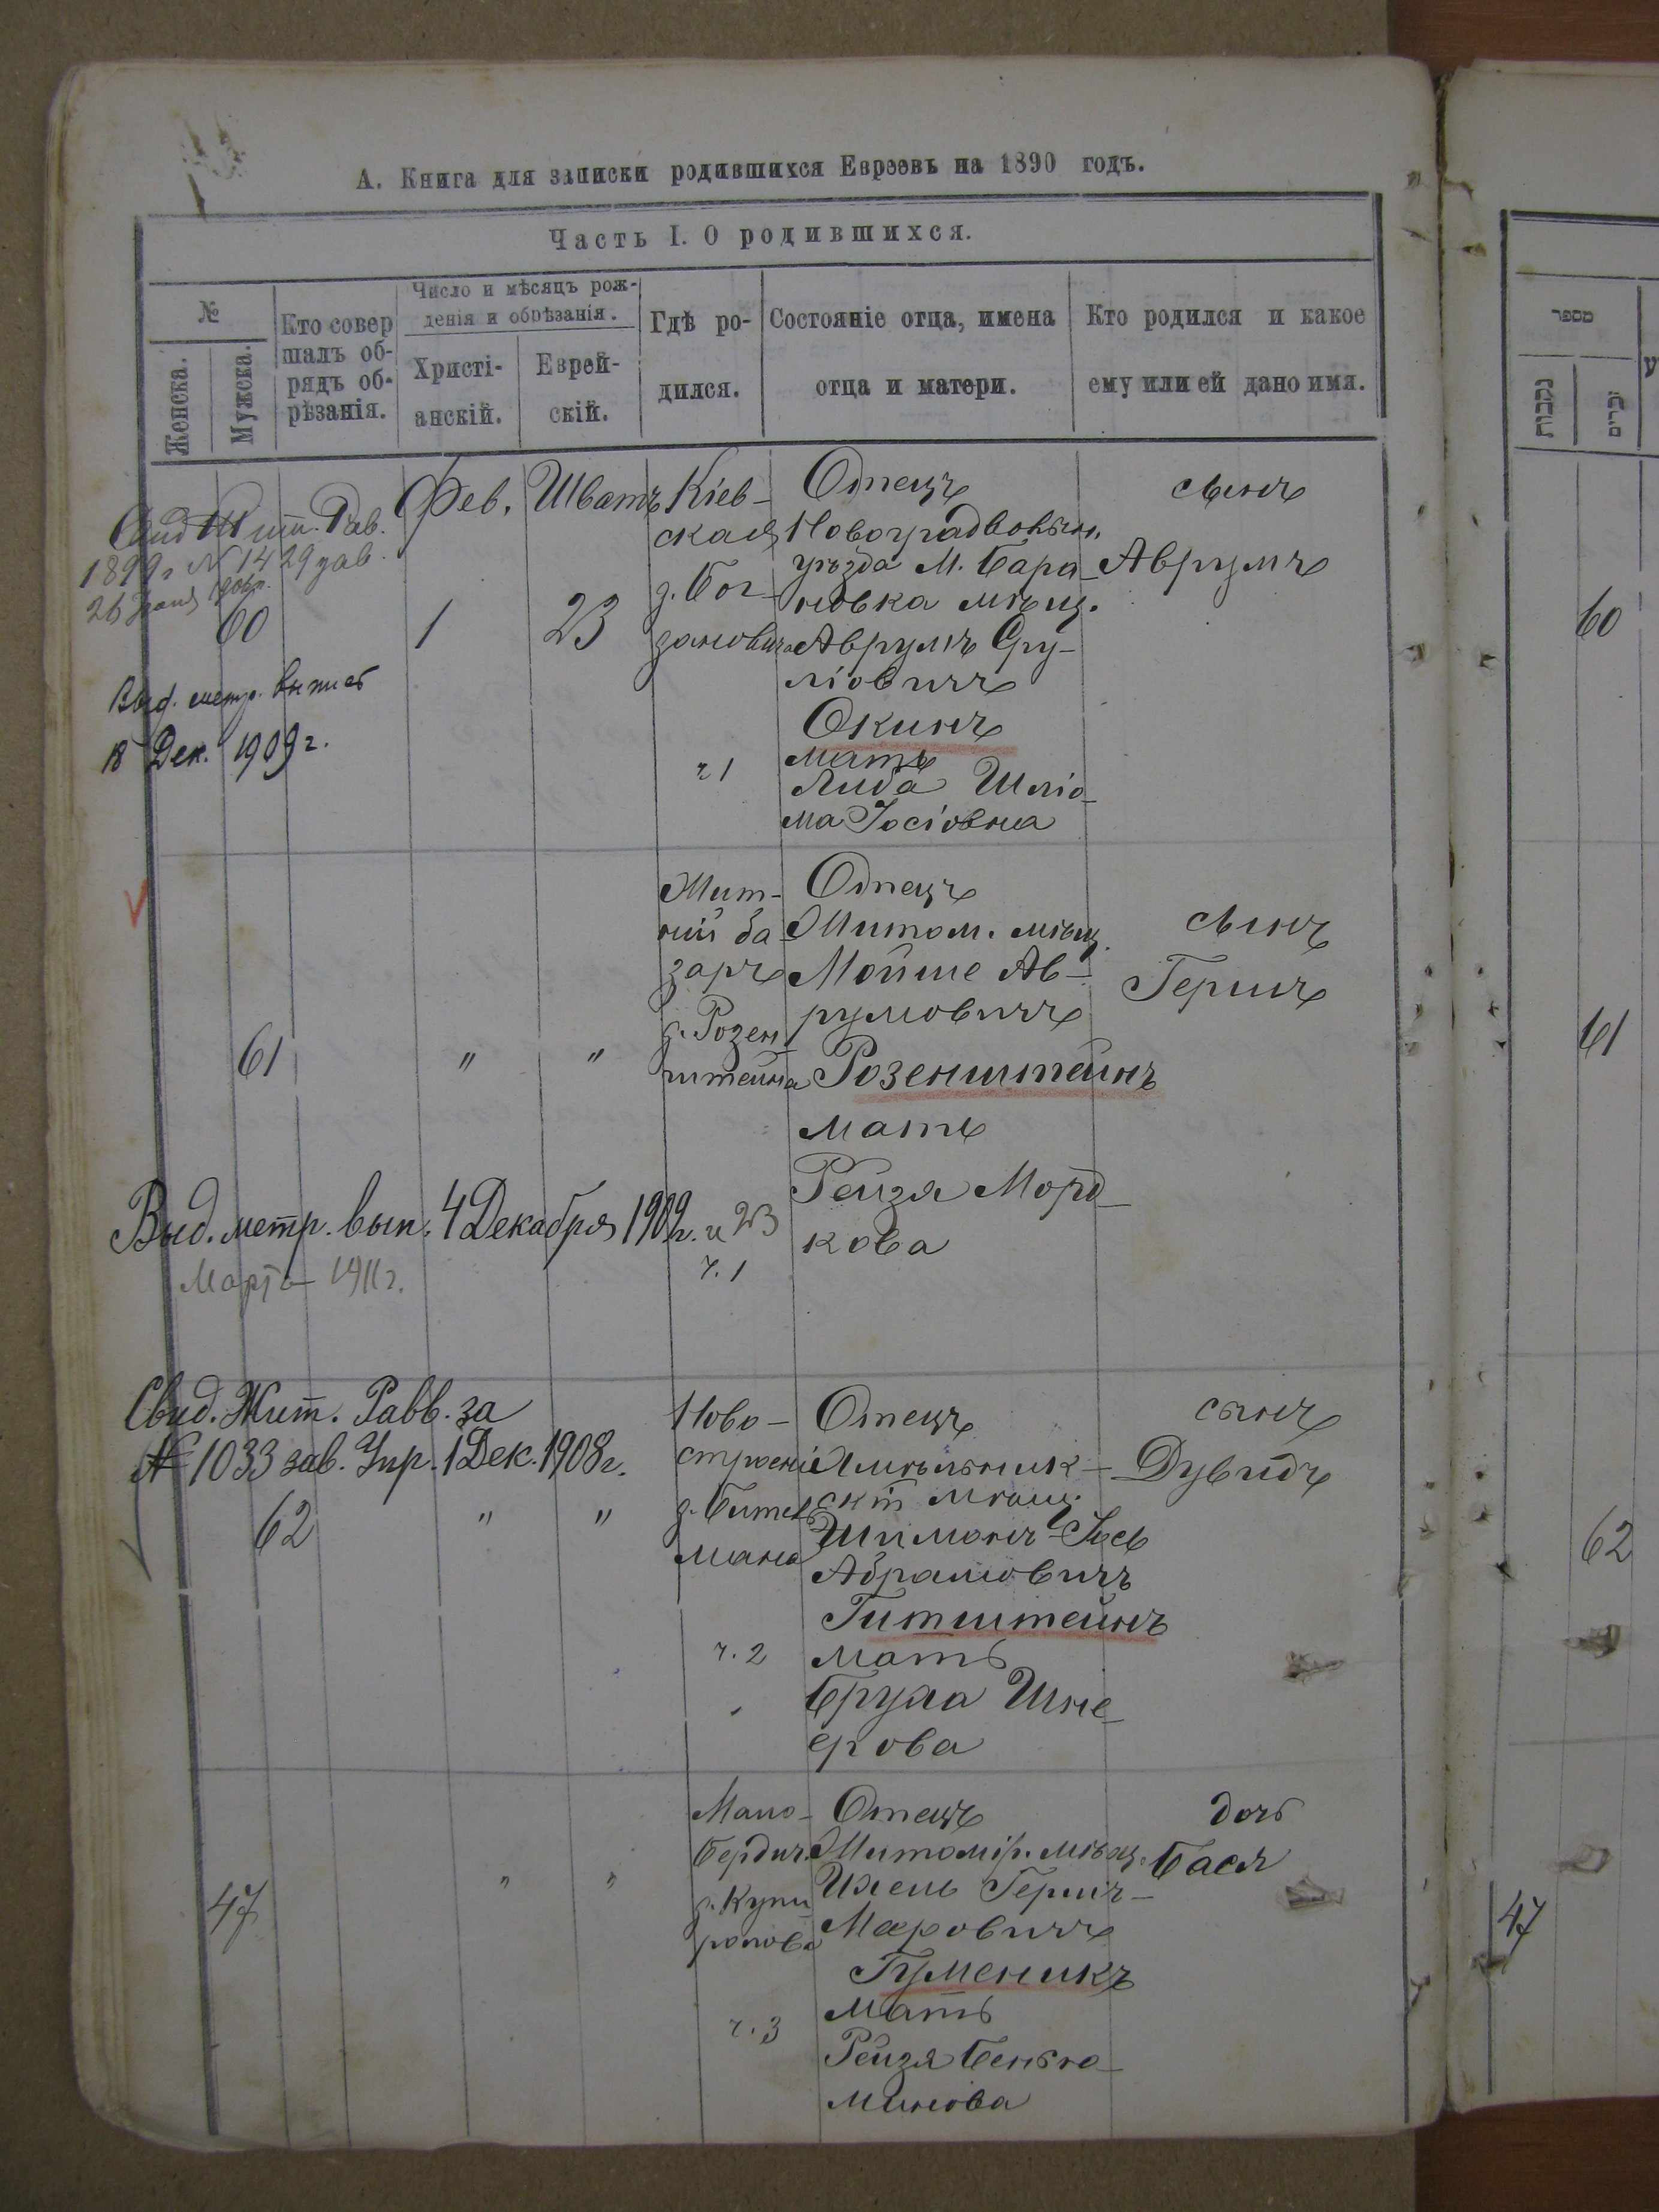 А. Книга для записки родившихся Евреевъ на 1890 годъ.
Часть I. О родившихся.
№
Женска.
Мужска.
Кто совер
шалъ об-
рядъ об-
рѣзанія.
Число и мѣсяцъ рож-
денія и обрѣзанія.
Христі-
анскій.
Еврей-
скій.
Гдѣ ро-
дился.
Состояніе отца, имена
отца и матери.
Кто родился и какое
ему или ей дано имя.
מספר
נקבות
זכרים
Свид Жит. Рав.
1899г № 1429 зав.
26
60
Выд. метр. выпись
18 Дек. 1909 г.
Фев.
1
Шватъ
23
Кіев-
ская
д. Бог-
ч1
Отецъ
Новоградволын.
уѣзда М. Бара-
новка мѣщ.
Аврумъ Сру-
ліовичъ
Окинъ
мать
Либа Шліо-
ма Іосіовна
сынъ
Аврумъ
60
61
"
"
Жит-
ній ба-
заръ
д. Розен
штейна
ч. 1
Отецъ
Житом. мѣщ.
Мойше Ав-
румовичъ
Розенштейнъ
мать
Рейзя Морд-
кова
сынъ
Гершъ
61
Выд. метр. вып. 4 Декабря 1909г. и 23
Марта 1911г.
Свид. Жит. Равв. за
№ 1033 зав. Упр. 1 Дек. 1908г.
62
"
"
Ново-
строеніе
д. Битель
мана
ч. 2
Отецъ
Хмѣльник-
скій мѣщ.
Шимонъ-Іось
Абрамовичъ
Гитштейнъ
мать
Бруха Шне-
ерова
сынъ
Дувидъ
62
47
"
"
Мало-
Бердич.
ч. 3
Отецъ
Житомір. мѣщ.
Ихель Гершъ-
Мееровичъ
Гуменикъ
мать
Рейзя Бенью-
минова
дочь
Бася
47